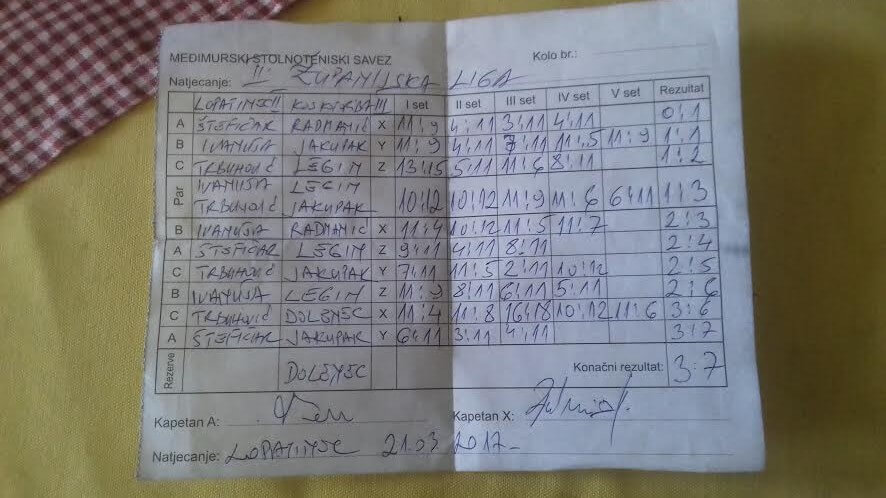 MEĐIMURSKI STOLNOTENISKI SAVEZ Kolo br.:
Natjecanje: II. ŽUPANIJSKA LIGA
LOPATINEC II I set II set III set IV set V set Rezultat
A ŠTEFIČAR RADMANIĆ X 11:9 4:11 3:11 4:11 0:1
B IVANUŠA JAKUPAK Y 11:9 4:11 7:11 11:5 11:9 1:1
C TRBUHOVIĆ LEGIN Z 13:15 5:11 11:6 8:11 1:2
Par IVANUŠA LEGIN
TRBUHOVIĆ JAKUPAK 10:12 10:12 11:9 11:6 6:11 1:3
B IVANUŠA RADMANIĆ X 11:4 10:12 11:5 11:7 2:3
A ŠTEFIČAR LEGIN Z 9:11 4:11 8:11 2:4
C TRBUHOVIĆ JAKUPAK Y 7:11 11:5 2:11 10:12 2:5
B IVANUŠA LEGIN Z 11:9 8:11 6:11 5:11 2:6
C TRBUHOVIĆ DOLENEC X 11:4 11:8 16:18 10:12 11:6 3:6
A ŠTEFIČAR JAKUPAK Y 6:11 3:11 4:11 3:7
Rezerve DOLENEC Konačni rezultat: 3:7
Kapetan A: Kapetan X:
Natjecanje: LOPATINEC 21.03 2017.